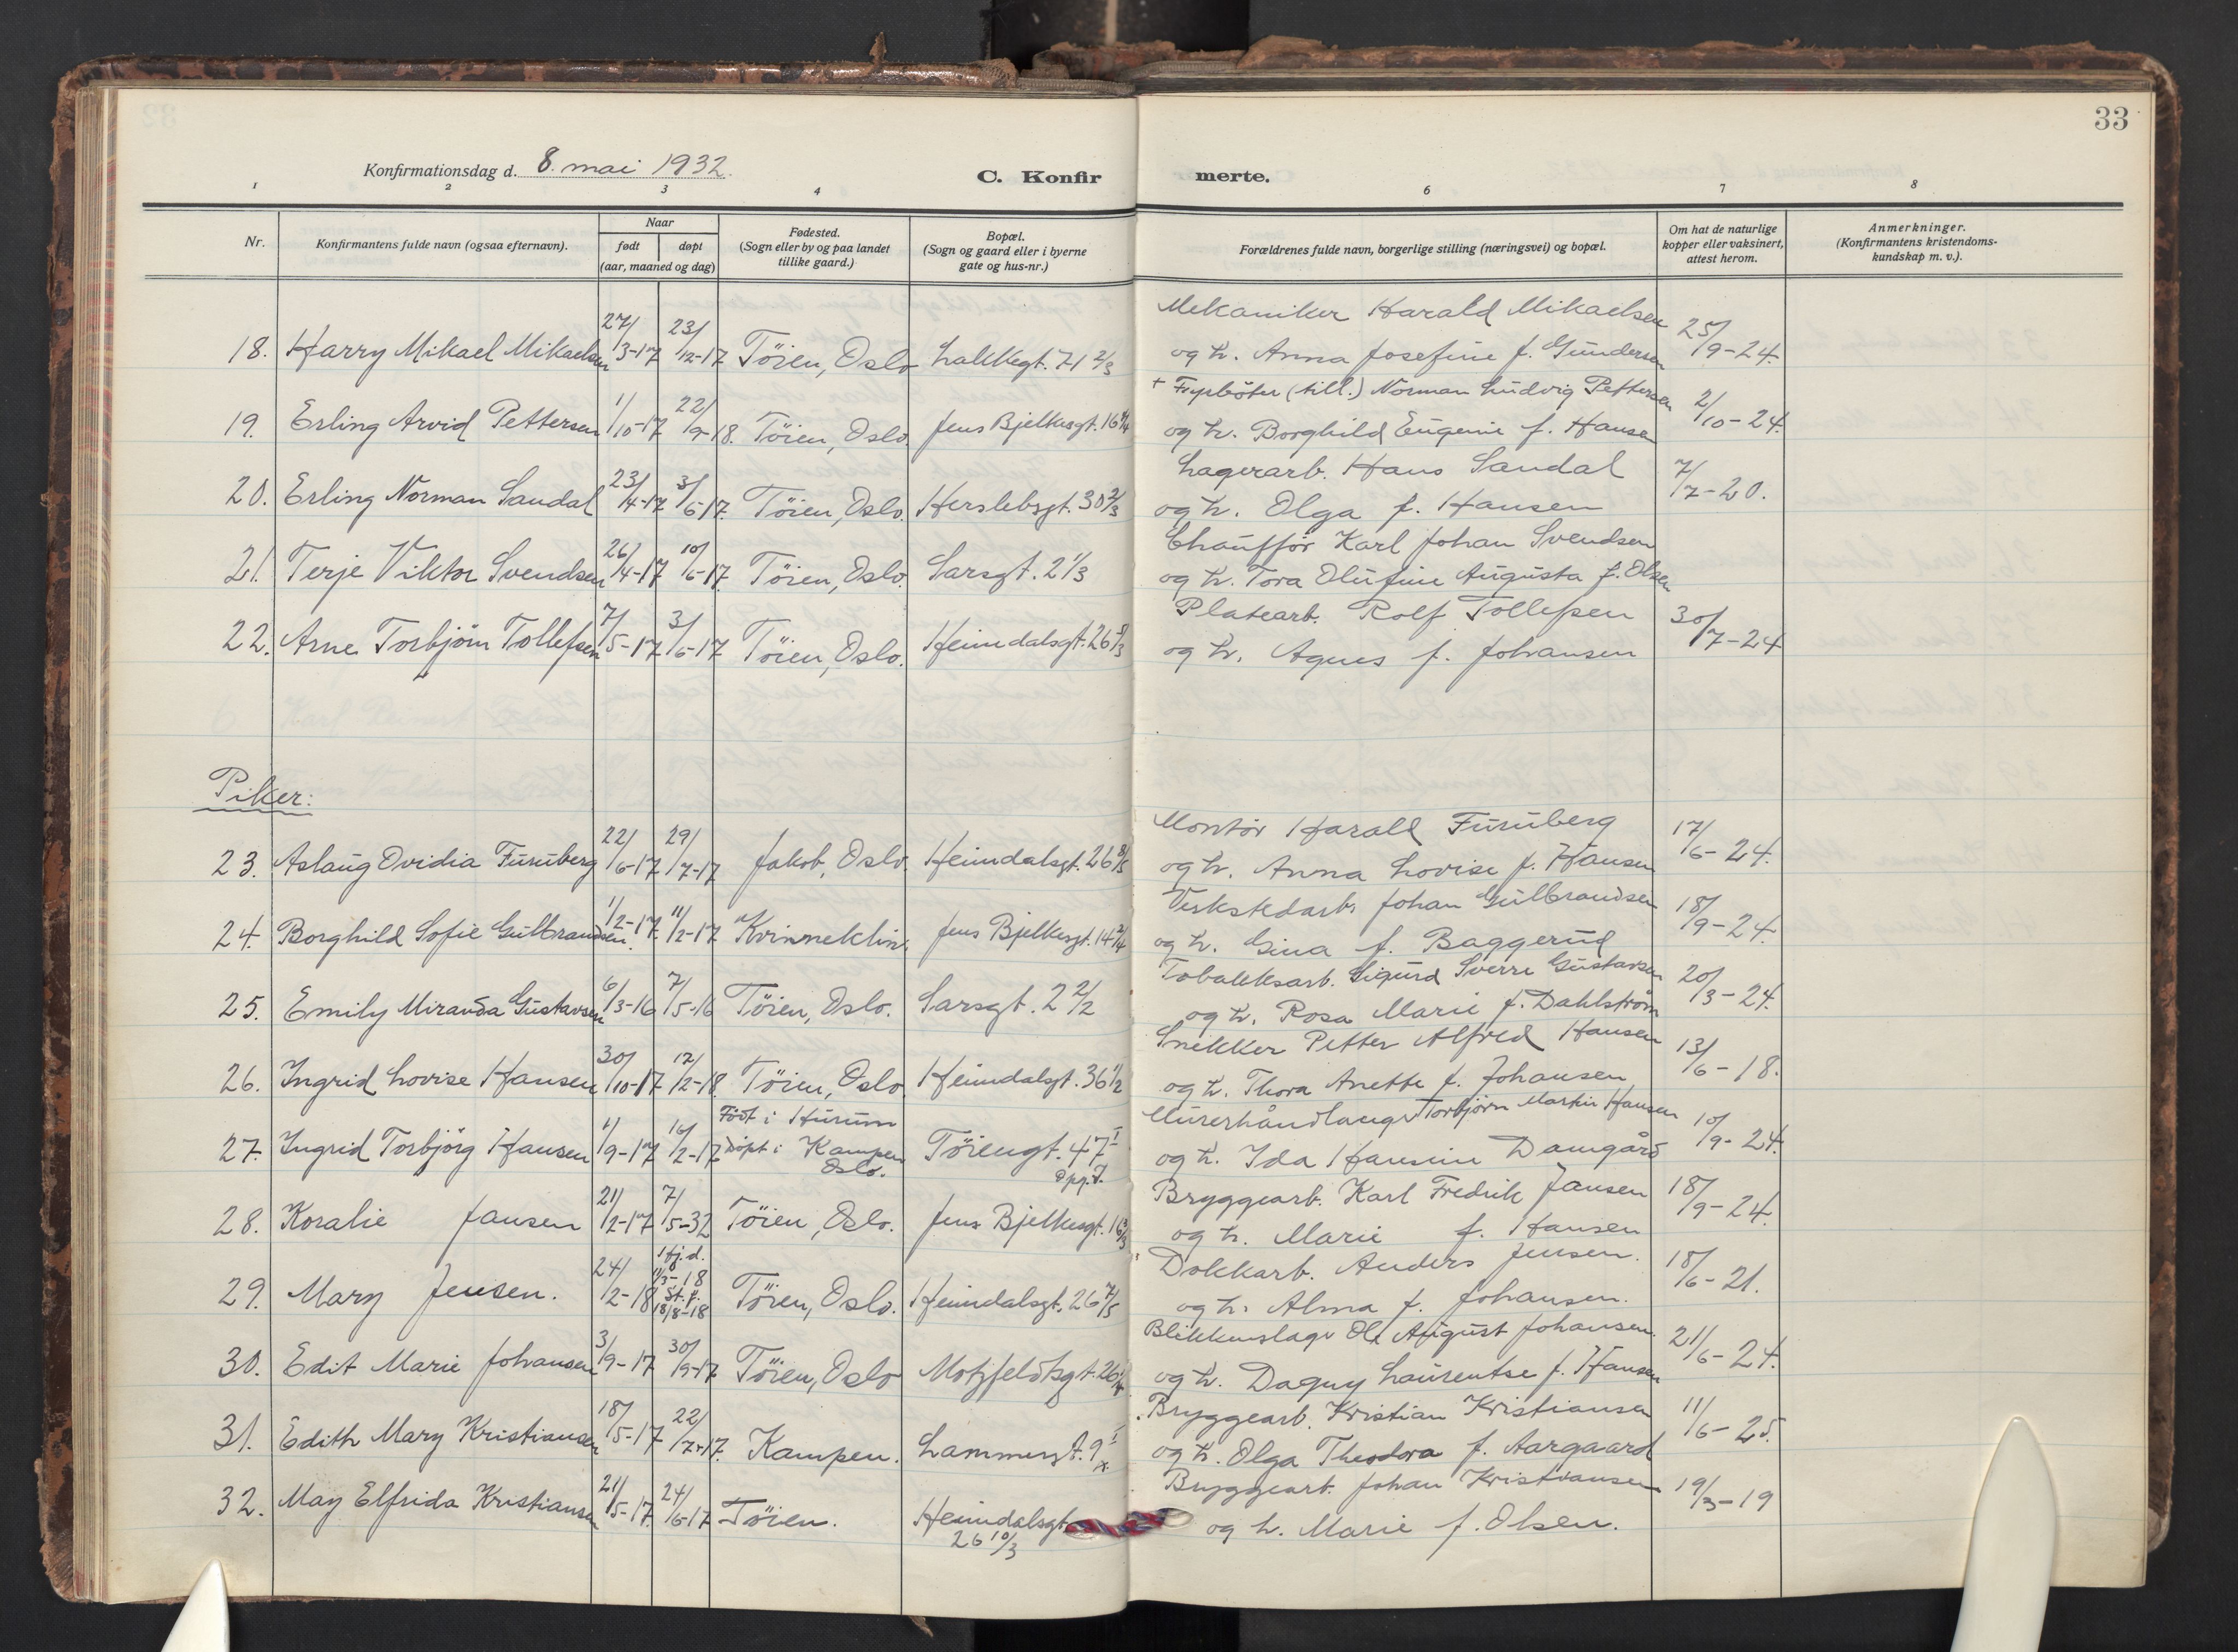 33
Konfirmationsdag d. 8. mai 1932.
C. Konfir merte.
1 2 3 4 6 7 8
Nr.
Konfirmantens fulde navn (ogsaa efternavn).
Naar
født
døpt
(aar, maaned og dag)
Fødested.
(Sogn eller by og paa landet
tillike gaard.)
Bopæl.
(Sogn og gaard eller i byerne
gate og hus-nr.)
Forældrenes fulde navn, borgerlige stilling (næringsvei) og bopæl.
Om hat de naturlige
kopper eller vaksinert,
attest herom.
Anmerkninger.
(Konfirmantens kristendoms-
kundskap m. v.).
Mekaniker Harald Mikaelsen
18. Harry Mikael Mikaelsen 27/3-17 23/12-17 Töien, Oslo Lakkegt. 71 2/3 og h. Anna Josefine f. Gundersen 25/9-24.
+ Fyrböter (till.) Norman Ludvig Pettersen
19. Erling Arvid Pettersen 1/10-17 22/9-18. Töien, Oslo. Jens Bjelkesgt. 16 og h. Borghild Eugenie f. Hansen 2/10-24.
Lagerarb. Hans Sandal
20. Erling Norman Sandal 23/4-17 3/6-17. Töien, Oslo. Herslebsgt. 30 2/3 og h. Olga f. Hansen 7/7-20.
Chaufför Karl Johan Svendsen
21. Terje Viktor Svendsen 26/4-17 10/6-17. Töien, Oslo. Sarsgt. 2 1/3 og h. Tora Olufine Augusta f. Olsen
Platearb. Rolf Tollefsen
22. Arne Torbjörn Tollefsen 7/5-17 3/6-17 Töien, Oslo. Heimdalsgt. 26 og h. Agnes f. Johansen 30/7-24
Piker:
Montör Harald Furuberg
23. Aslaug Ovidia Furuberg 22/6-17 29/7-17 Jakob, Oslo. Heimdalsgt. 26 8/5 og h. Anna Lovise f. Hansen 17/6-24.
Verkstedarb. Johan Gulbrandsen
24. Borghild Sofie Gulbrandsen. 1/2-17. 11/2-17 Kvinneklin. Jens Bjelkesgt. 14 2/4 og h. Gina f. Baggerud 18/9-24.
Tobakksarb. Sigurd Sverre Gustavsen
25. Emily Miranda Gustavsen 6/3-16 7/5-16 Töien, Oslo. Sarsgt. 2 2/2 og h. Rosa Marie f. Dahlström 20/3-24.
Snekker Petter Alfred Hansen
26. Ingrid Lovise Hansen 30/10-17 17/2-18. Töien, Oslo. Heimdalsgt. 36 1/2 og h. Thora Anette f. Johansen 13/6-18.
Födt i Hurum
Murerhåndlanger Torbjörn Martin Hansen
27. Ingrid Torbjörg Hansen 1/9-17 16/2-17 döpt i Kampen Oslo. Töiengt. 47 I Opg. I. og h. Ida Hansine Damgård 10/9-24.
Bryggearb. Karl Fredrik Jansen
28. Koralie Jansen 21/2-17 7/5-32 Töien, Oslo. Jens Bjelkesgt. 16 3/3 og h. Marie f. Hansen 18/9-24.
Dokkarb. Anders Jensen.
29. Mary Jensen. 24/2-18 1 hj.d. 11/3-18 St. f. 18/8-18 Töien, Oslo. Heimdalsgt. 26 7/5 og h. Alma f. Johansen. 18/6-21.
Blikkenslager Ole August Johansen.
30. Edit Marie Johansen 3/9-17 30/9-17 Töien, Oslo Motzfeldtsgt. 26 og h. Dagny Laurentse f. Hansen 21/6-24.
Bryggearb. Kristian Kristiansen
31. Edith Mary Kristiansen 18/5-17 22/7-17. Kampen. Lammersgt. 9 I og h. Olga Theodora f. Aargaard 11/6-25.
Bryggearb. Johan Kristiansen
32. May Elfrida Kristiansen 21/5-17. 24/6-17 Töien. Heimdalsgt. 26 10/3 og h. Marie f. Olsen. 19/3-19